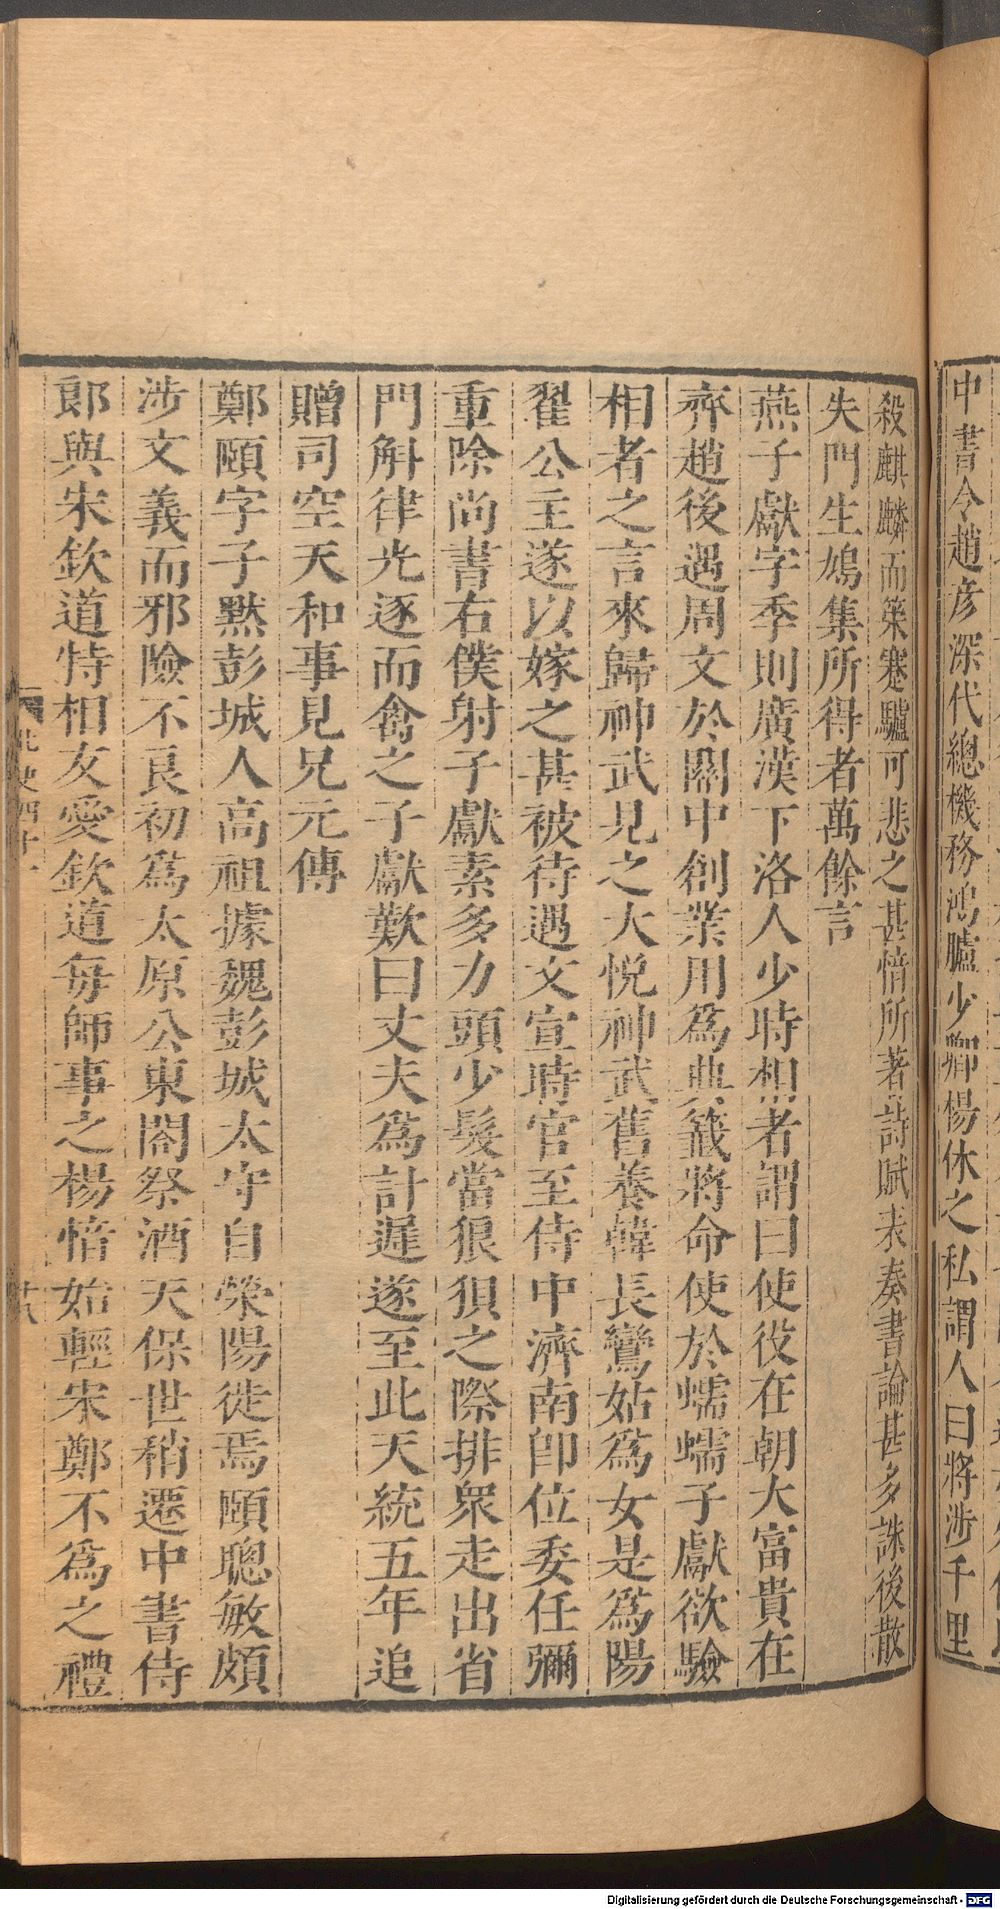 中書令趙彦深代總機務鴻臚少卿楊休之私謂人曰將涉千里
殺麒麟而策蹇驢可悲之甚愔所著詩賦表奏書論甚多誅後散
失門生鳩集所得者萬餘言
燕子獻字季則廣漢下洛人少時相者謂曰使役在朝大富貴在
齊趙後遇周文於關中創業用爲典籤將命使於蠕蠕子獻欲驗
相者之言來歸神武見之大悦神武舊養韓長鸞姑爲女是爲陽
翟公主遂以嫁之甚被待遇文宣時官至侍中濟南卽位委任彌
重除尚書右僕射子獻素多力頭少髮當狼狽之際排衆走出省
門斛律光逐而禽之子獻歎曰丈夫爲計遲遂至此天統五年追
贈司空天和事見兄元傳
鄭頤字子默彭城人高祖據魏彭城太守自滎陽徙焉頤聰敏頗
涉文義而邪險不良初爲太原公東閤祭酒天保世稍遷中書侍
郎與宋欽道特相友愛欽道每師事之楊愔始輕宋鄭不爲之禮
北史四十一
十八
Digitalisierung gefördert durch die Deutsche Forschungsgemeinschaft - DFG